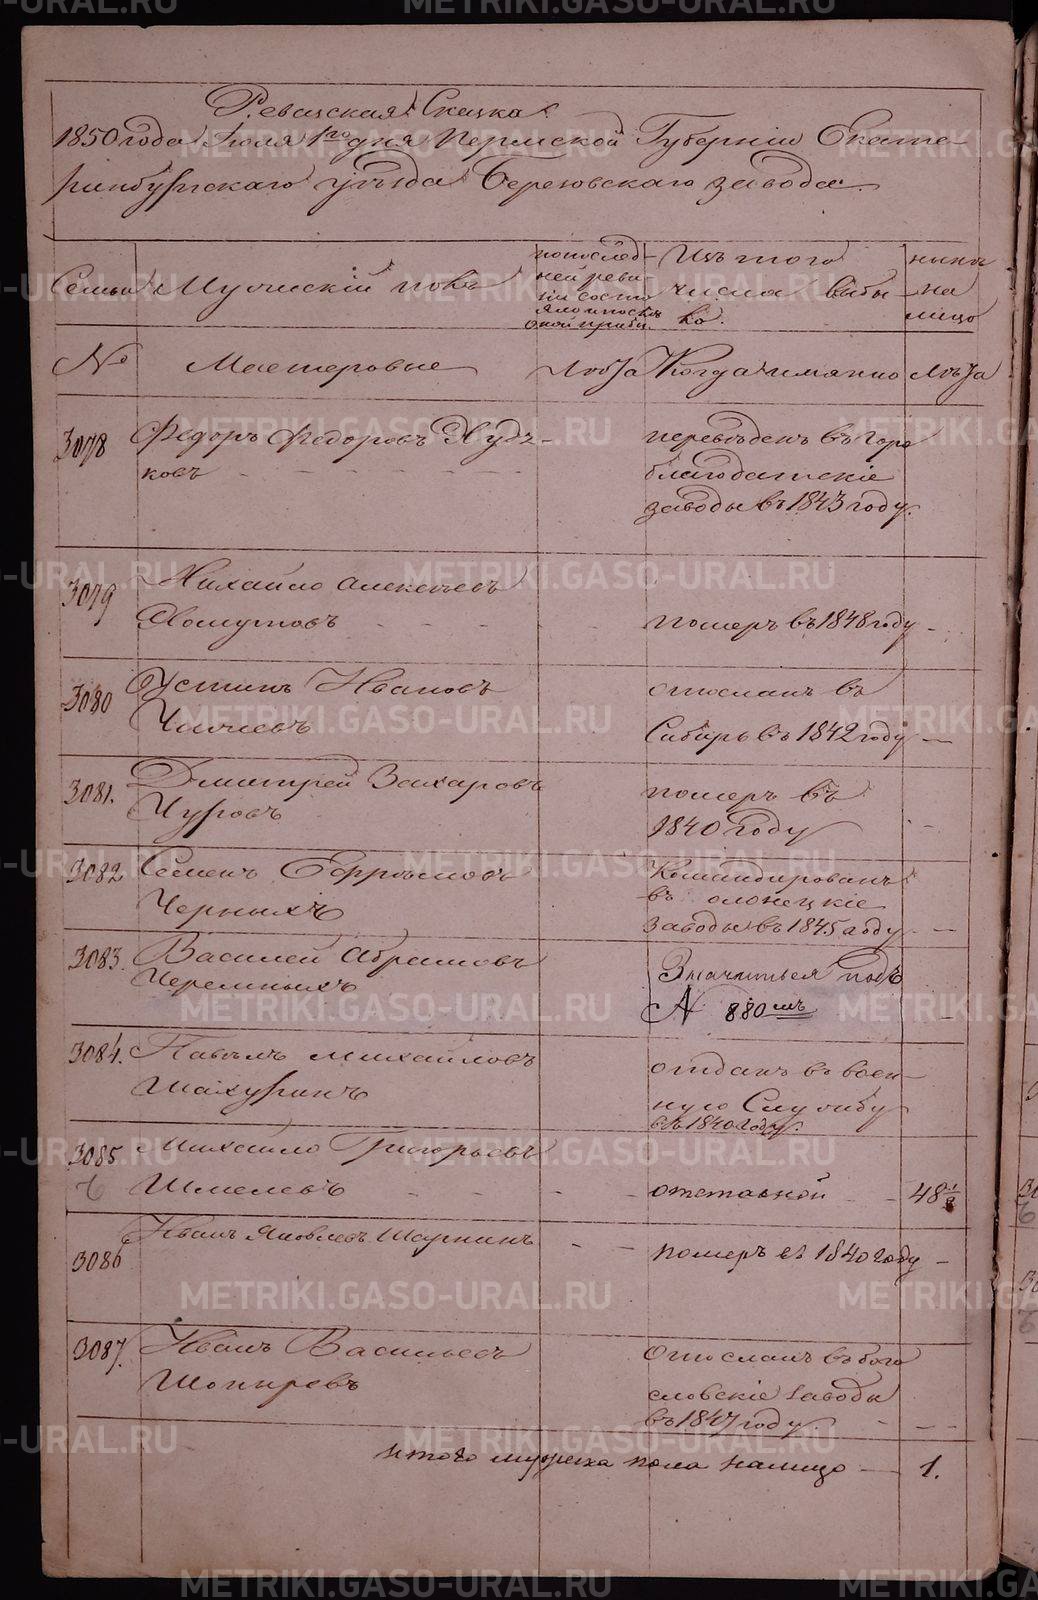 Ревизская Сказка
1850 года Июля 1го дня Пермской Губерніи Екате
ринбургскаго уѣзда Березовскаго завода
Семьи Мужескій полъ
по послед-
ней реви
зіи состо
Изъ того
числа выбы
ло.
нынѣ
на
лицо
№ Мастеровые Лѣта Когда имянно Лѣта
3078 Федоръ Федоровъ Худя-
ковъ
переведенъ въ Горо
благодатскіе
заводы въ 1843 году.
3079 Михайло Алексѣевъ
Хомутовъ померъ въ 1848 году
3080 Устинъ Ивановъ
Чичевъ
отосланъ въ
Сибирь въ 1842 году
3081. Дмитрей Захаровъ
Чуровъ
померъ въ
1840 году
3082 Семенъ Ефремовъ
Черныхъ
Командированъ
въ олонецкіе
заводы въ 1845 году
3083. Василей Абрамовъ
Черемныхъ
Значиться подъ
№ 880мъ
3084. Павелъ Михайловъ
Шахуринъ
отданъ въ воен-
ную Службу
въ 1840 году.
3085 Михайло Григорьевъ
Шмелевъ отставной 48
3086 Иванъ Яковлевъ померъ въ 1840 году
3087. Иванъ Васильевъ
отосланъ въ бого
словскіе заводы
въ 1847 году.
итого мужеска пола налицо 1.
METRIKI.GASO-URAL.RU